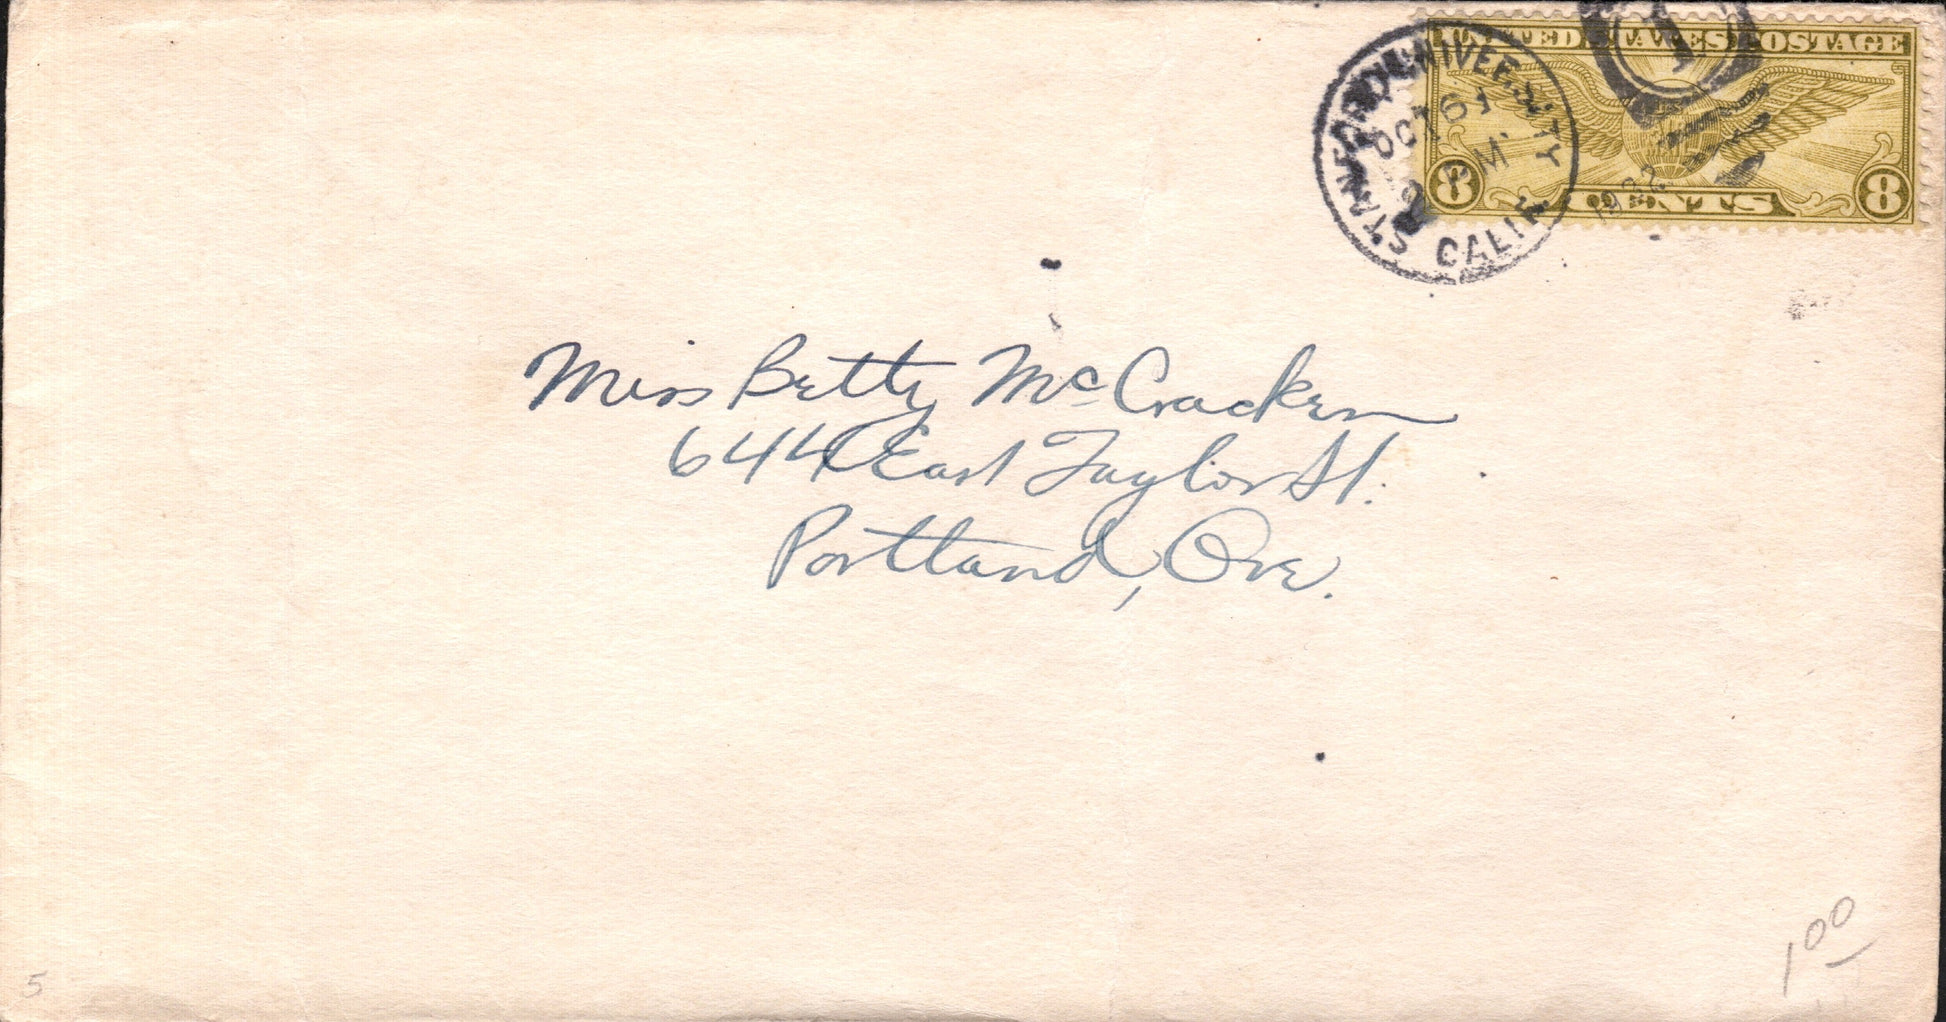 UNITED STATES POSTAGE
8 CENTS 8
STANFORD UNIVERSITY
OCT 16
PM
1932
CALIF.
1
Miss Betty McCracken
644 East Taylor St.
Portland, Ore.
1.00
5